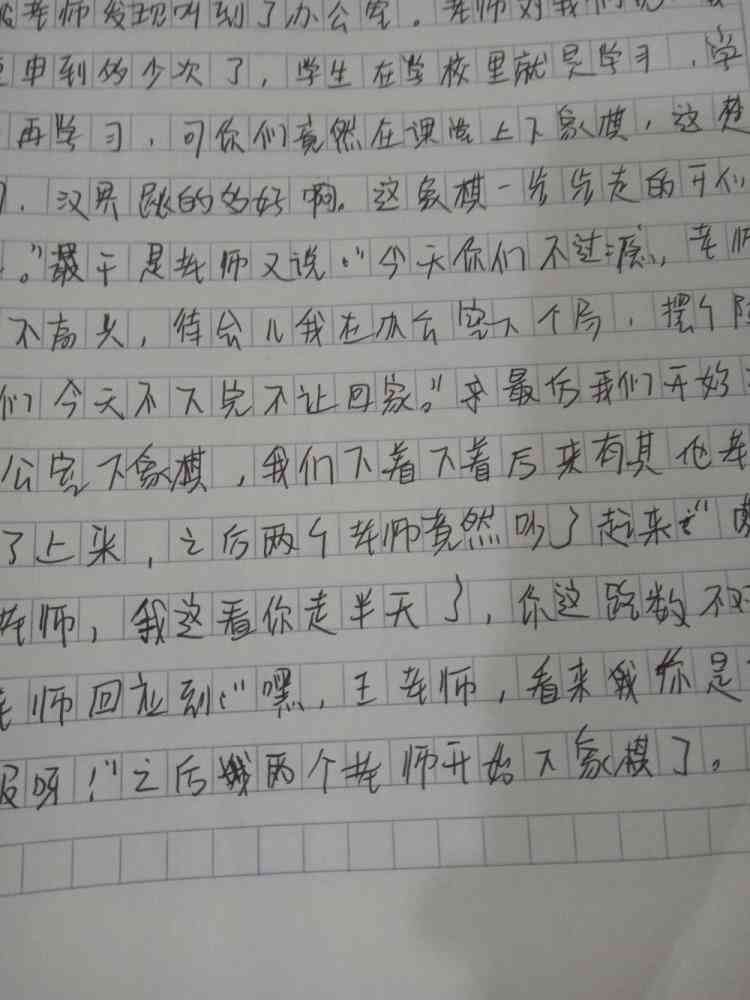 老师发现叫到了办公室。老师对我们说
申到多少次了，学生在学校里就是学习，学
再学习，可你们竟然在课堂上下象棋，这楚
，汉界跳的多好啊。这象棋一步步走的开们
。”于是老师又说：“今天你们不过瘾，老师
不高兴，待会儿我在办公室下个局，摆个
们今天不下完不让回家。”最后我们开始
公室下象棋，我们下着下着后来有其他老
了上来，之后两个老师竟然吵了起来：“
老师，我这看你走半天了，你这跑数不对
老师回应到：“嘿，王老师，看来你是
呀！”之后两个老师开始下象棋了。